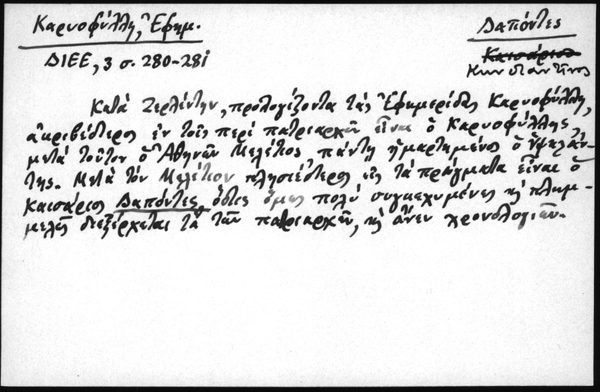 Καρυοφύλλη, Ἐφημ.
Δαπόντες
Καισάριος
Κωνσταντῖνος
ΔΙΕΕ, 3 σ. 280-281
Κατά Ζερλέντην, προλογίζοντα τάς Ἐφημερίδας Καρυοφύλλη,
ἀκριβέστερος ἐν τοῖς περί πατριαρχῶν εἶναι ὁ Καρυοφύλλης,
μετά τοῦτον ὁ Ἀθηνῶν Μελέτιος πάντῃ ἡμαρτημένος ὁ Ὑψηλάν-
της. Μετά τόν Μελέτιον πλησιέστερος εἰς τά πράγματα εἶναι ὁ
Καισάριος Δαπόντες, ὅστις ὅμως πολύ συγκεχυμένως κ πλημ-
μελῶς διεξέρχεται τά τῶν πατριαρχῶν, κ ἄνευ χρονολογιῶν.